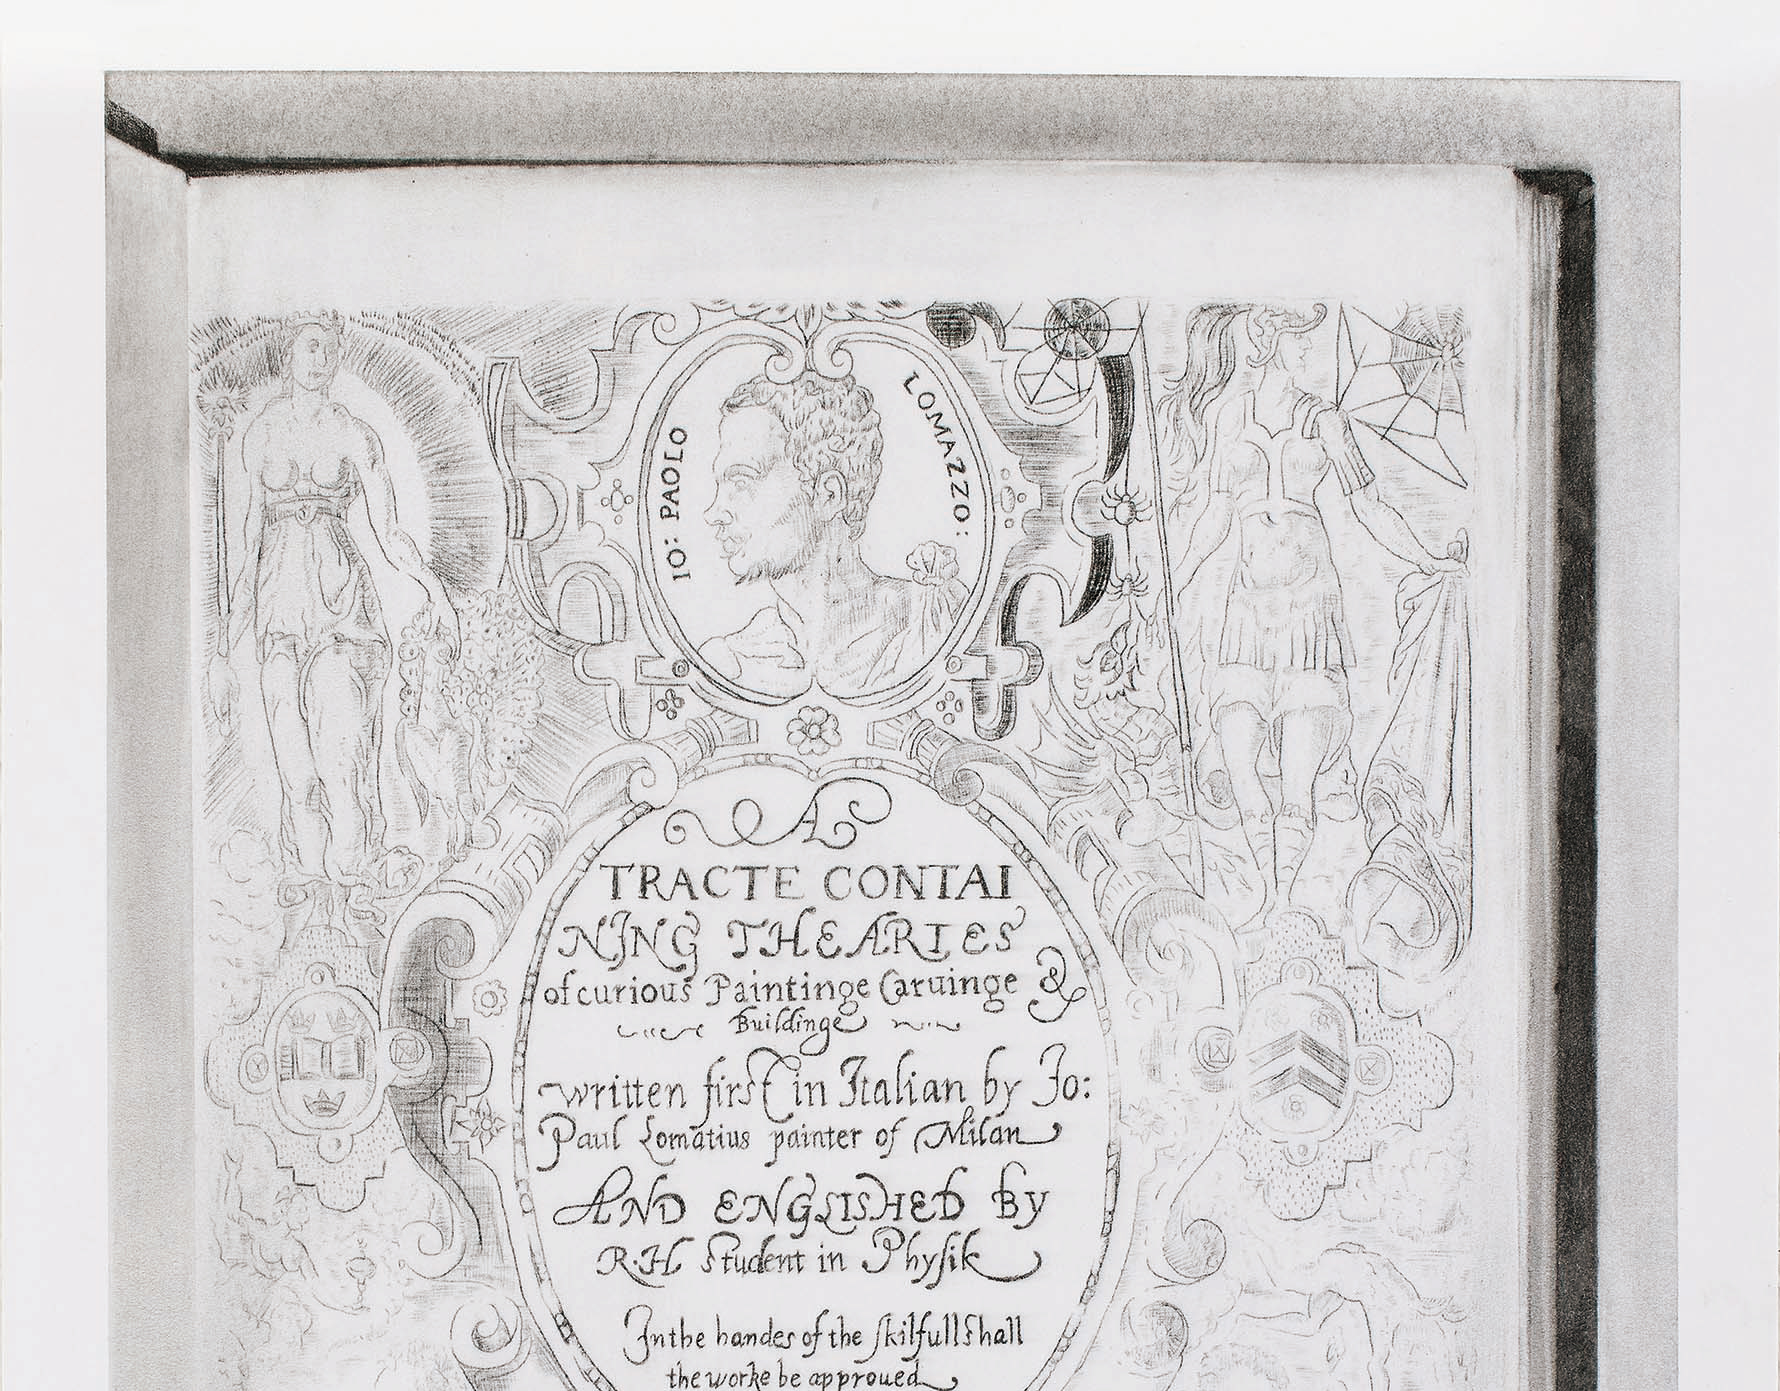 IO: PAOLO
LOMAZZO:
A
TRACTE CONTAI
NING THE ARTES
of curious Paintinge Caruinge &
Buildinge
written first in Italian by Jo:
Paul Lomatius painter of Milan
AND ENGLISHED BY
R.H Student in Physik
In the handes of the skilfull shall
the worke be approued